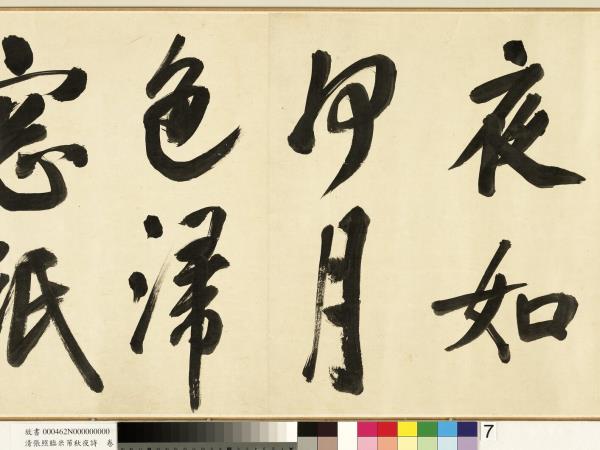 夜如
何月
色歸
窓紙
故書 000462N000000000
清張照臨米芾秋夜詩 卷
7